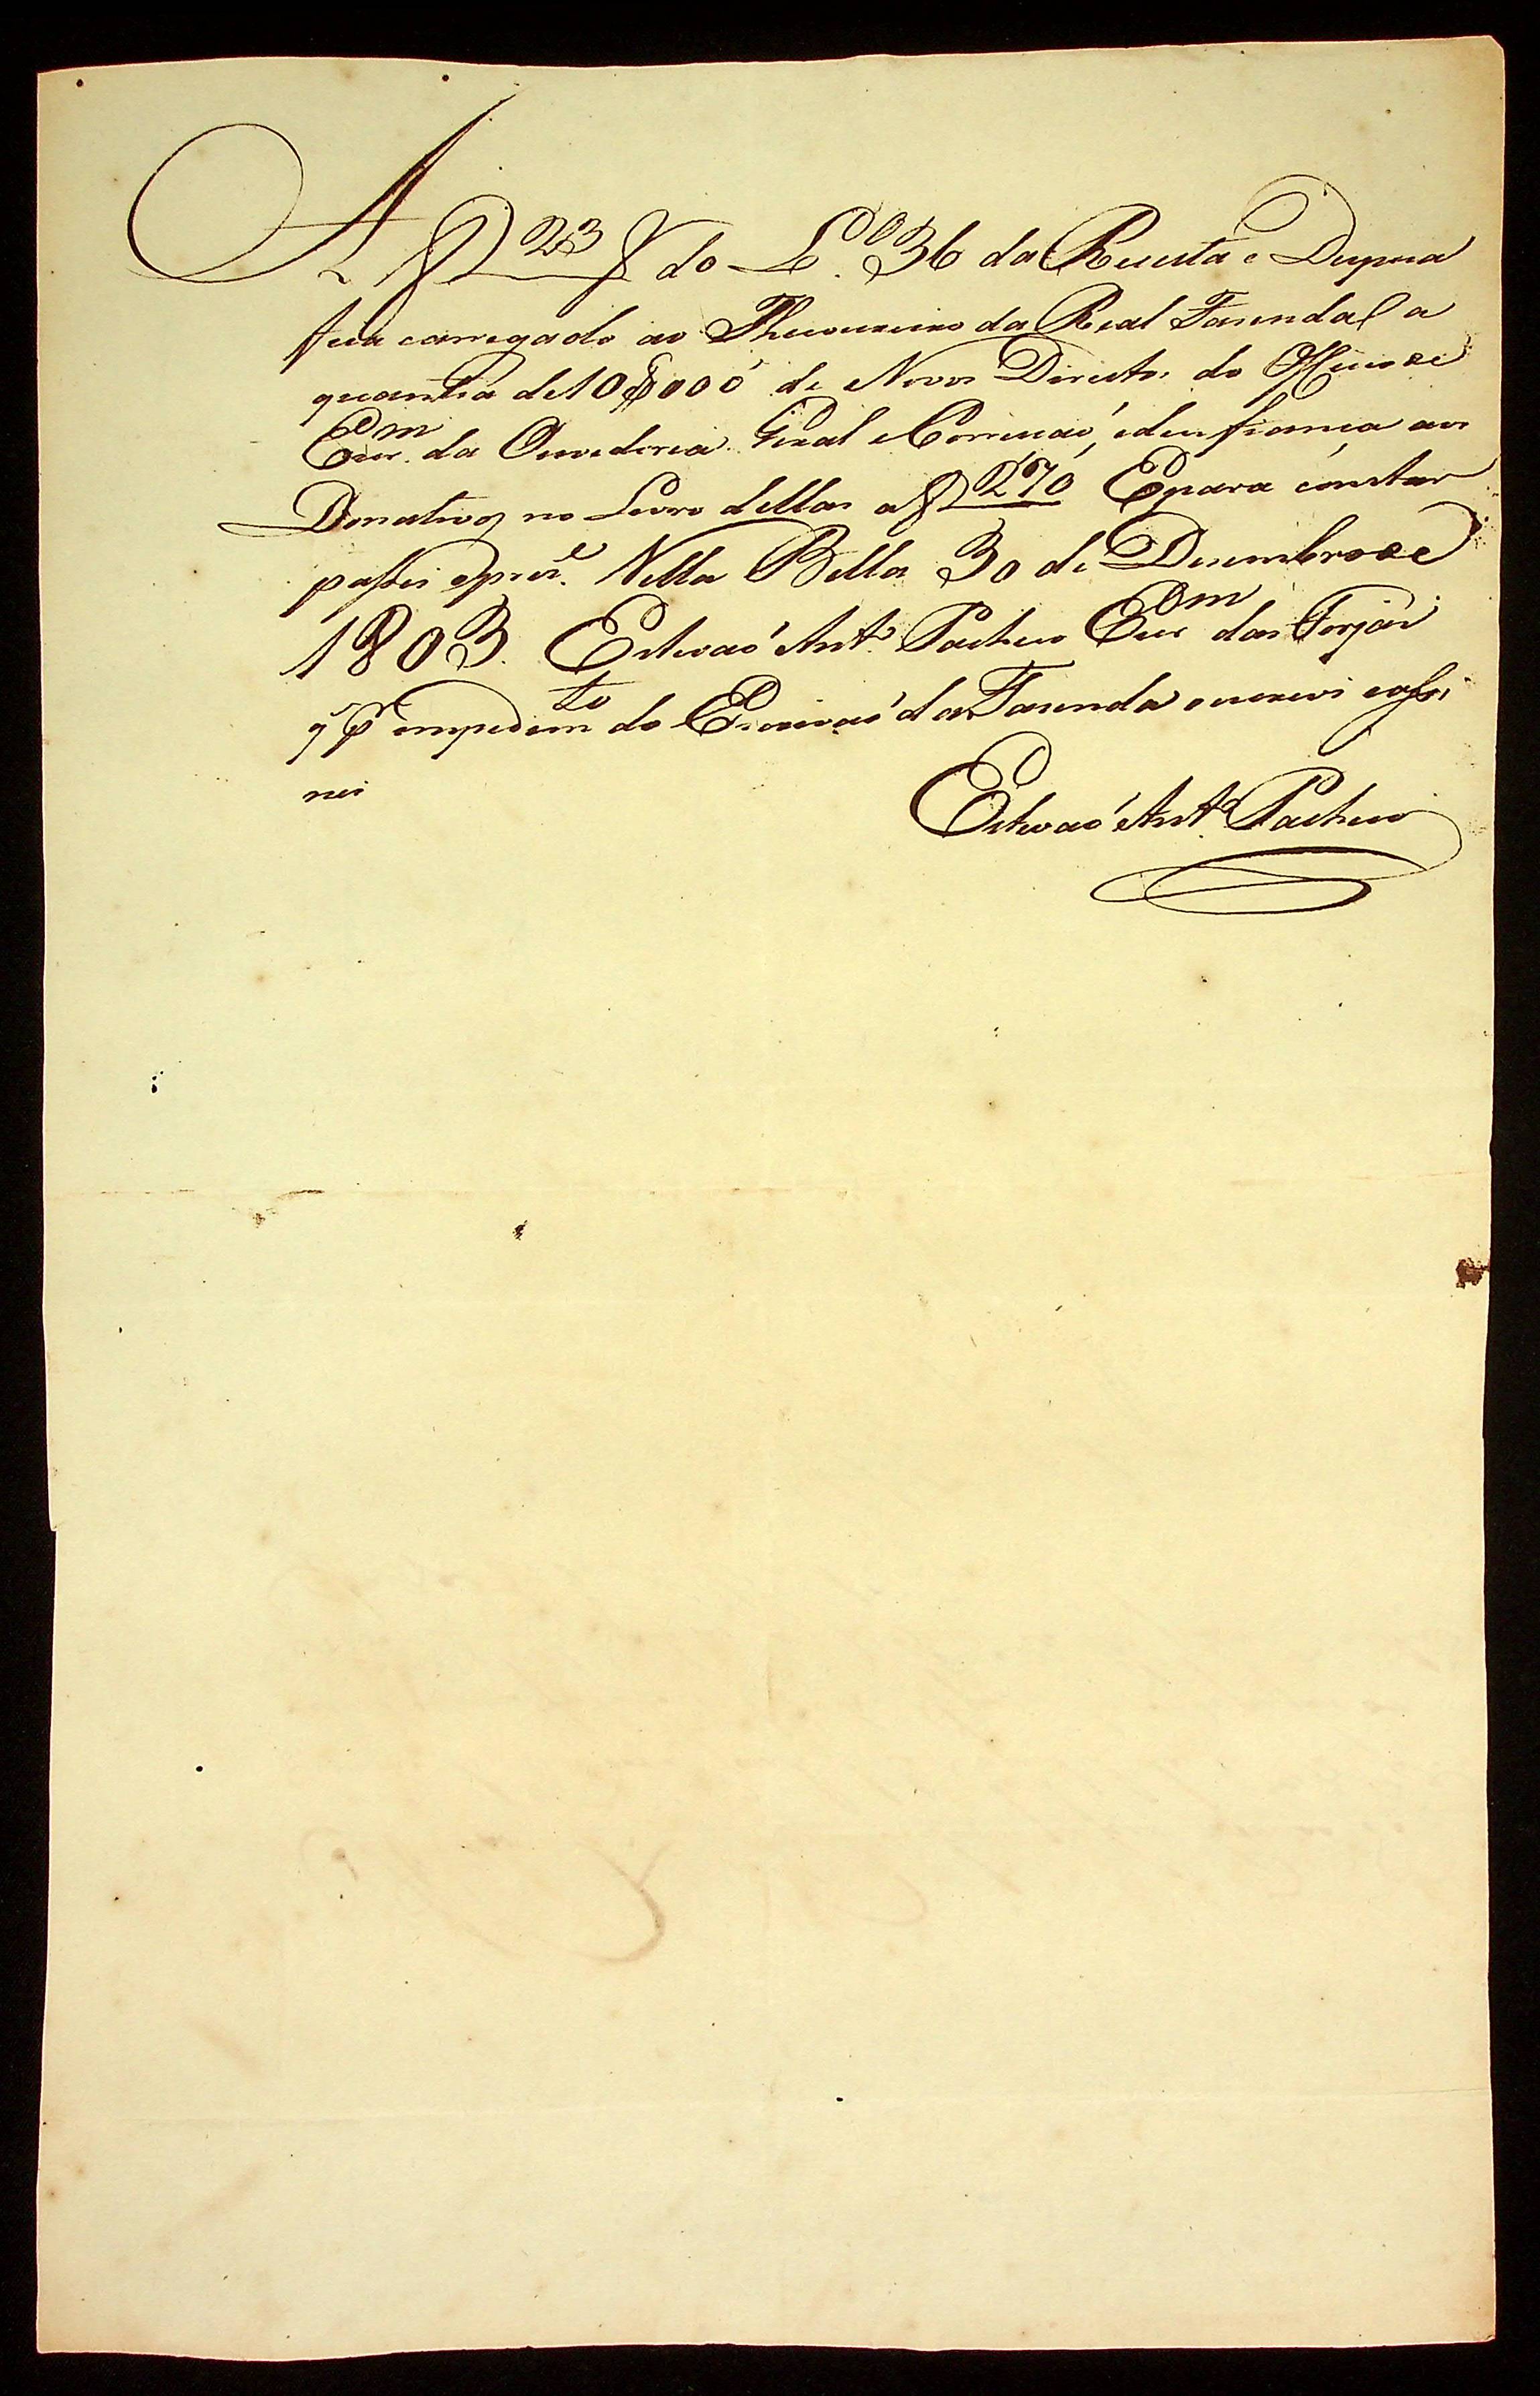 A f 23 V do L.º 36 da Receita e Despeza
fica carregado ao Thezoureiro da Real Fazenda a
quantia de 10$000 de Novos Direitos do Officio de
Escr.am da Ouvedoria Geral e Correicaõ, e deu fiança aos
Donativos no Livro dellas a f 270 E para constar
passei o prez.e Villa Bella 30 de Dezembro de
1803. Estevaõ Ant.º Pacheco Escr.am das Forjas
q' p.r empedim.to do Escrivaõ da Fazenda o escrevi e assi
nei
Estevaõ Ant.º Pacheco